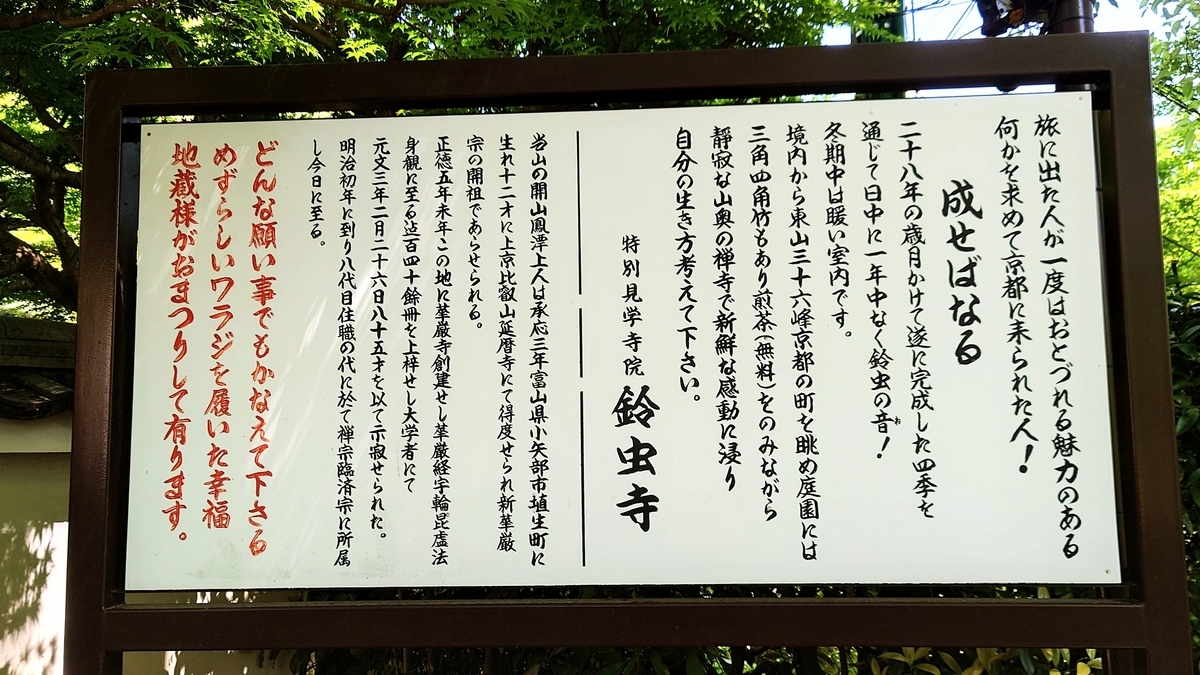 旅に出た人が一度はおとづれる魅力のある
何かを求めて京都に来られた人！
成せばなる
二十八年の歳月かけて遂に完成した四季を
通じて日中に一年中なく鈴虫の音！
お
冬期中は暖い室内です。
境内から東山三十六峰京都の町を眺め庭園には
三角四角竹もあり煎茶(無料)をのみながら
静寂な山奥の禅寺で新鮮な感動に浸り
自分の生き方考えて下さい。
特別見学寺院 鈴虫寺
当山の開山鳳潭上人は承応三年富山県小矢部市埴生町に
生れ十二才に上京比叡山延暦寺にて得度せられ新華厳
宗の開祖であらせられる。
正徳五年未年この地に華厳寺創建せし華厳経宇輪昆虚法
身観に至る迄百四十餘冊を上梓せし大学者にて
元文三年二月二十六日八十五才を以て示寂せられた。
明治初年に到り八代目住職の代に於て禅宗臨済宗に所属
し今日に至る。
どんな願い事でもかなえて下さる
めずらしいワラジを履いた幸福
地蔵様がおまつりして有ります。